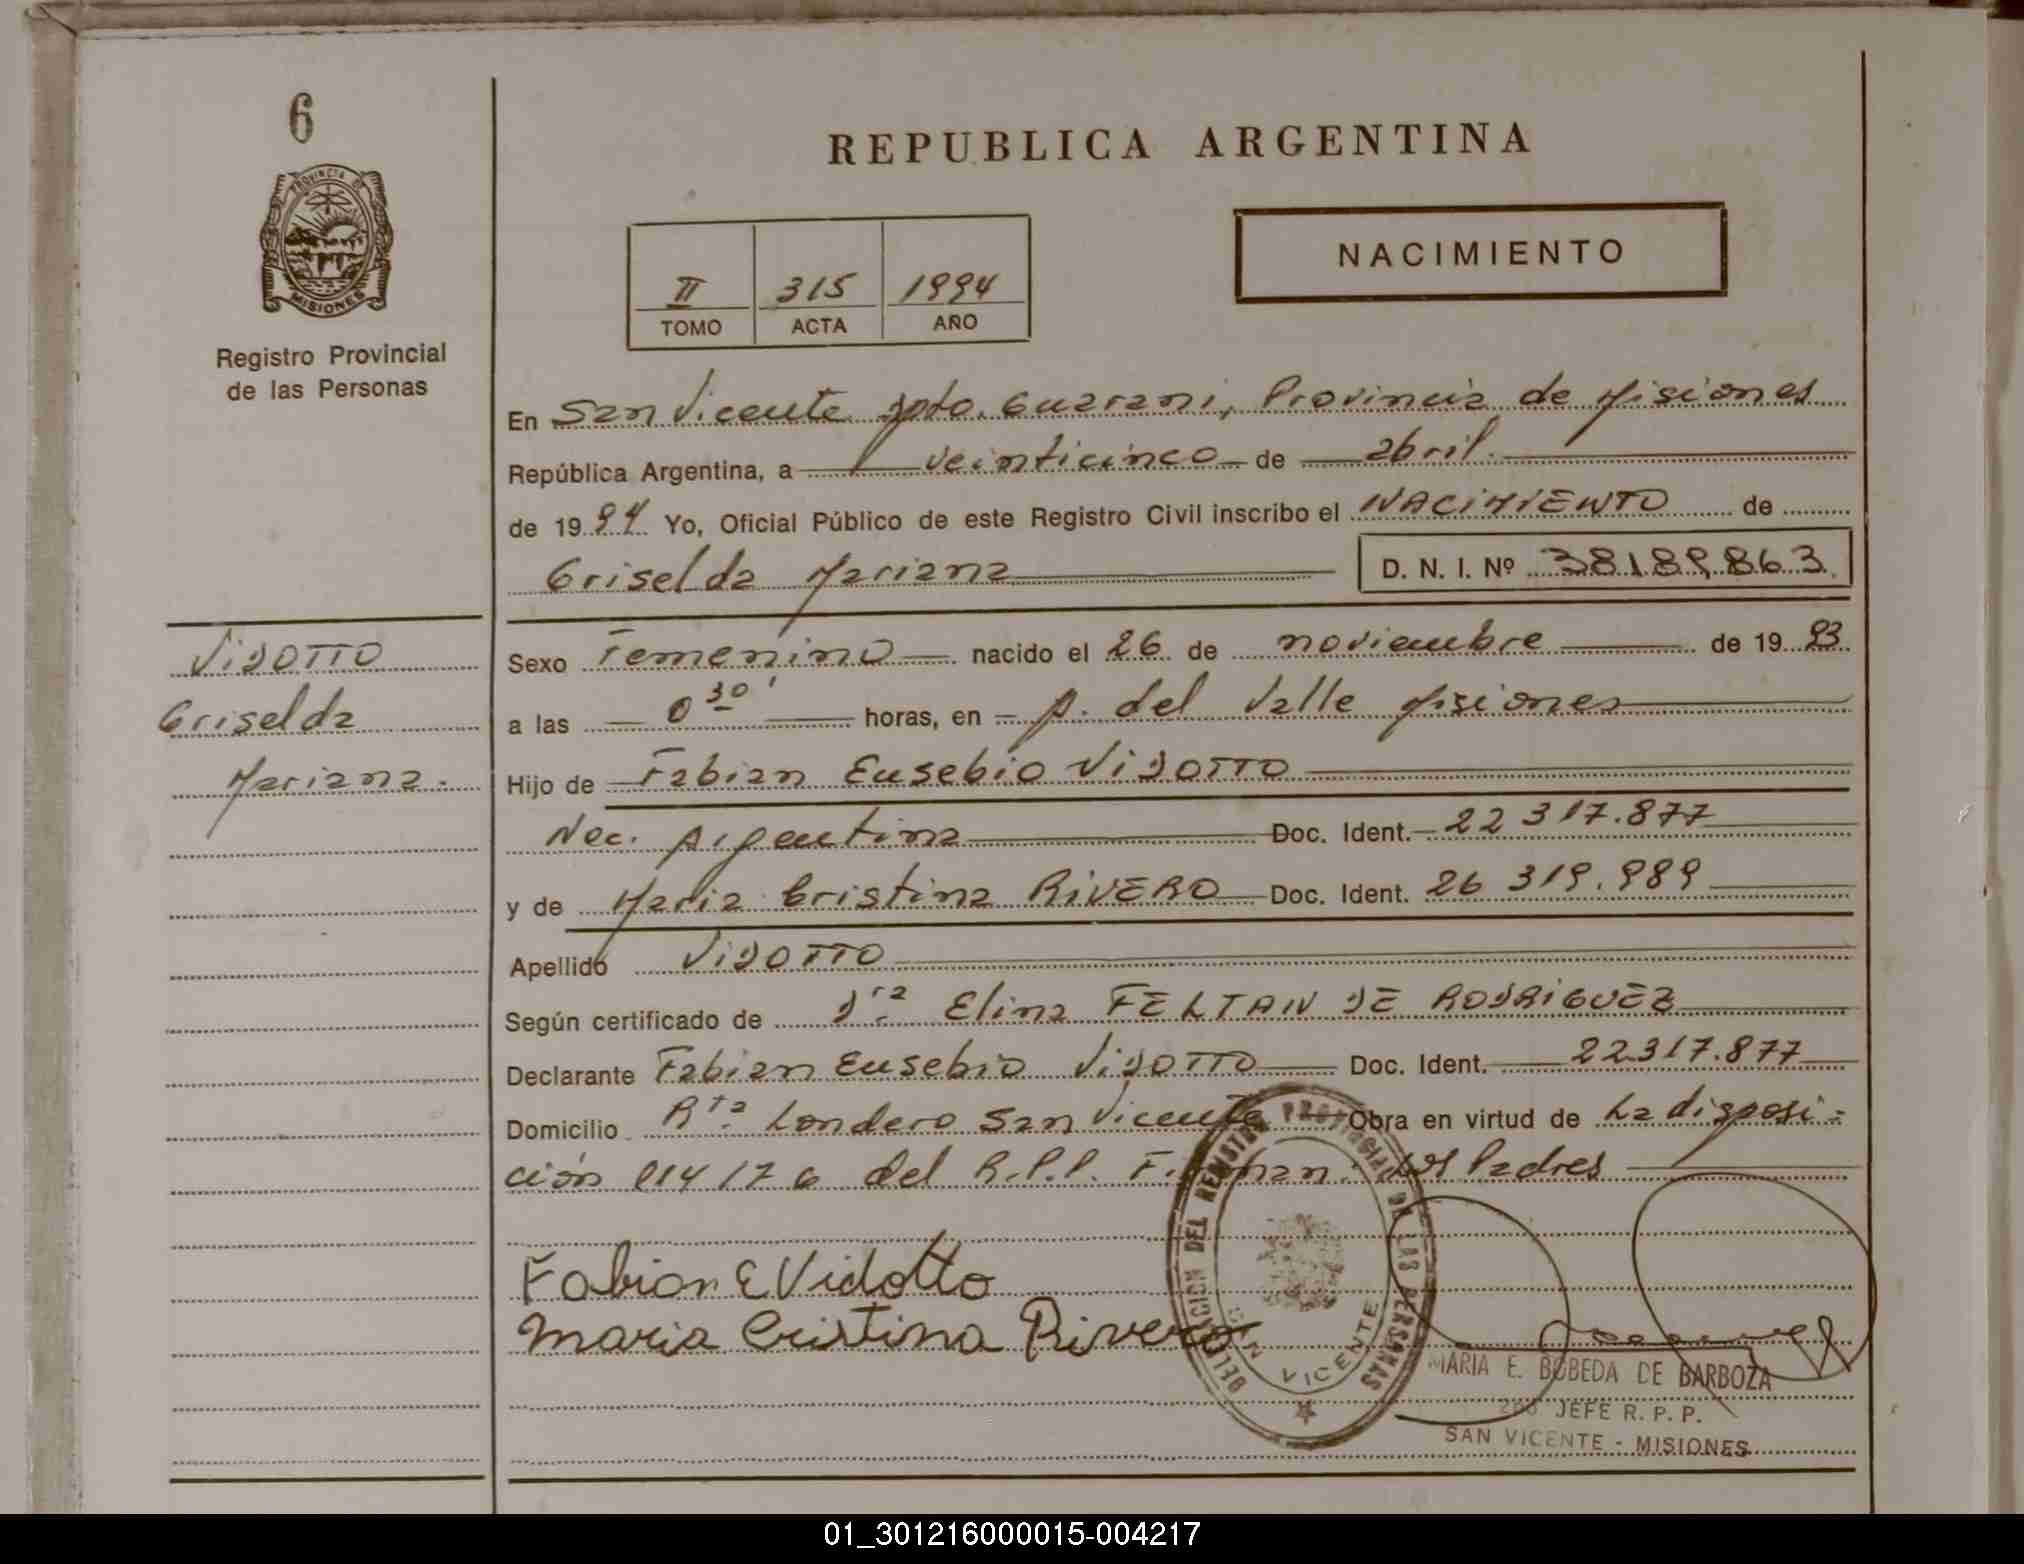 6
PROVINCIA DE
MISIONES
Registro Provincial
de las Personas
VIDOTTO
Griselda
Mariana.
REPUBLICA ARGENTINA
NACIMIENTO
II 315 1994
TOMO ACTA AÑO
En San Vicente Dpto. Guarani, Provincia de Misiones
República Argentina, a veinticinco de abril.
de 1994 Yo, Oficial Público de este Registro Civil inscribo el NACIMIENTO de
Griselda Mariana D. N. I. Nº 38.189.863
Sexo Femenino nacido el 26 de noviembre de 1993
a las 0 30' horas, en A. del Valle Misiones
Hijo de Fabian Eusebio VIDOTTO
Nac. Argentina Doc. Ident. 22 317.877
y de Maria Cristina RIVERO Doc. Ident. 26 319.989
Apellido VIDOTTO
Según certificado de Dra. Elina FELTAN DE RODRIGUEZ
Declarante Fabian Eusebio VIDOTTO Doc. Ident. 22317.877
Domicilio Rta. Londero San Vicente Obra en virtud de La disposi=
ción 114/76 del R.P.P. Firman: Los Padres
Fabian E Vidotto
Maria Cristina Rivero
DELEGACION DEL REGISTRO PROVINCIAL DE LAS PERSONAS
SAN VICENTE
MARIA E. BOBEDA DE BARBOZA
2do JEFE R. P. P.
SAN VICENTE - MISIONES
01_301216000015-004217